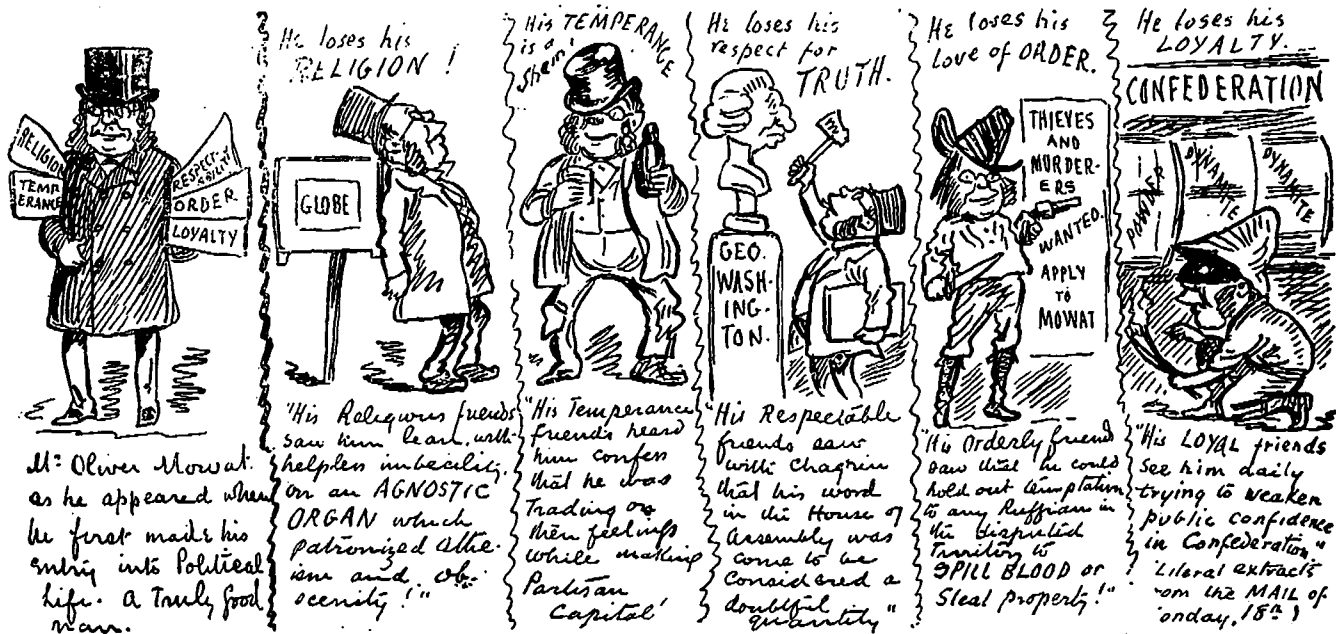 RELIGION
TEMP
ERANCE
RESPECT-
ABILITY
ORDER.
LOYALTY
Mr. Oliver Mowat
as he appeared when
he first made his
entry into Political
Life. A Truly Good
man.
He loses his
RELIGION!
GLOBE
"His Religious friends
saw him lean, with
helpless imbecility,
on an AGNOSTIC
ORGAN which
patronized Athe-
ism and, ob-
scenity!"
His TEMPERANCE
is a
Sham!
"His Temperance
friends heard
him confess
that he was
Trading on
their feelings
while making
Partisan
Capital'
He loses his
respect for
TRUTH.
GEO.
WASH-
ING-
TON.
"His Respectable
friends saw
with Chagrin
that his word
in the House of
Assembly was
come to be
considered a
doubtful
quantity"
He loses his
Love of ORDER.
THIEVES
AND
MURDER-
ERS
WANTED.
APPLY
TO
MOWAT
"His Orderly friends
saw that he could
hold out temptation
to any Ruffian in
the disputed
Territory to
SPILL BLOOD or
Steal property!"
He loses his
LOYALTY.
CONFEDERATION
POWDER
DYNAMITE
DYNAMITE
"His LOYAL friends
see him daily
trying to weaken
public confidence
in Confederation."
Literal extracts
from the MAIL of
onday, 18th